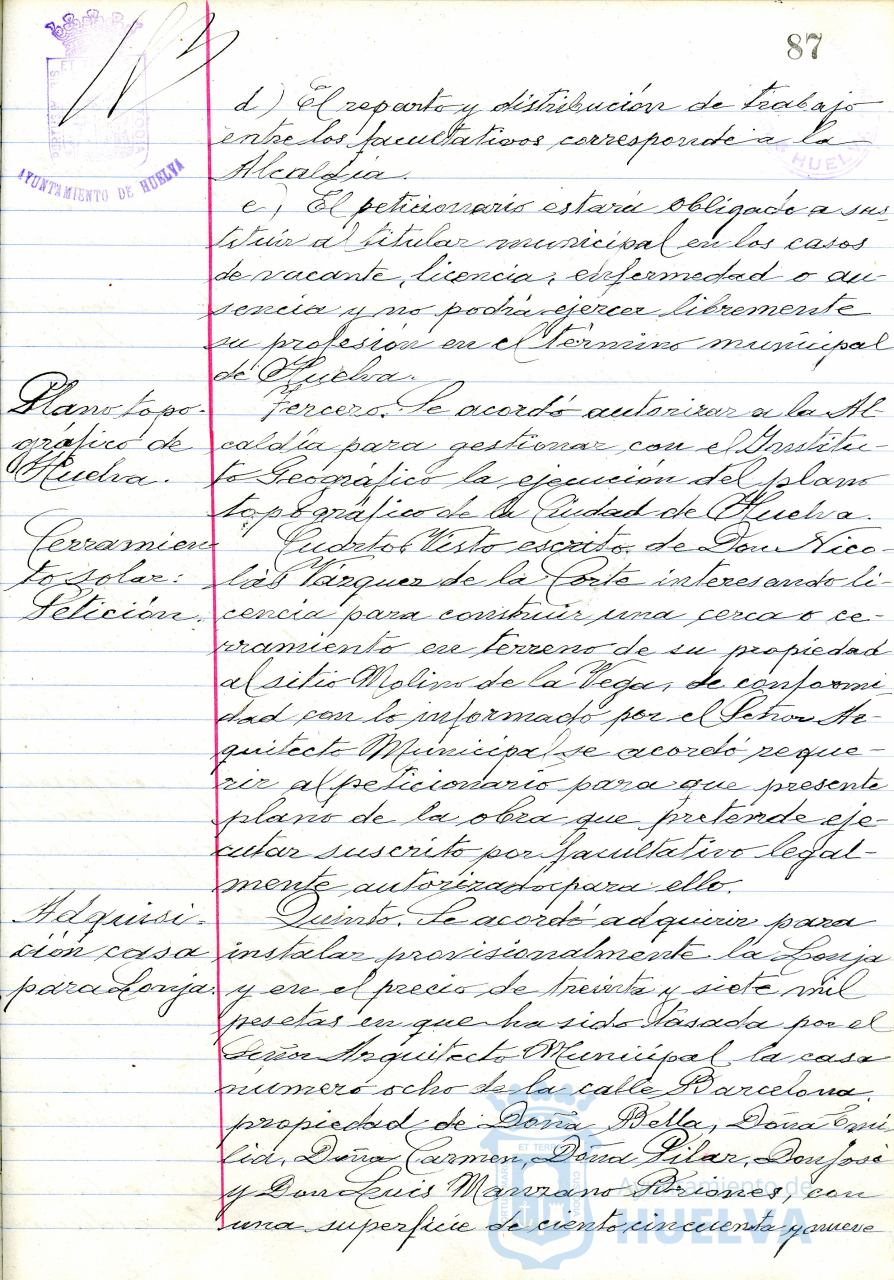 87
AYUNTAMIENTO DE HUELVA
HUELVA
d) El reparto y distribución de trabajo
entre los facultativos corresponde a la
Alcaldía.
e) El peticionario estará obligado a sus-
tituir al titular municipal en los casos
de vacante, licencia, enfermedad o au-
sencia y no podrá ejercer libremente
su profesión en el término municipal
de Huelva.
Plano topo-
gráfico de
Huelva.
Tercero. Se acordó autorizar a la Al-
caldía para gestionar con el Institu-
to Geográfico la ejecución del plano
topográfico de la Ciudad de Huelva.
Cerramien
to solar:
Petición.
Cuarto. Visto escrito de Don Nico-
lás Vázquez de la Corte interesando li
cencia para construir una cerca o ce-
rramiento en terreno de su propiedad
al sitio Molino de la Vega, de conformi-
dad con lo informado por el Señor Ar-
quitecto Municipal se acordó reque-
rir al peticionario para que presente
plano de la obra que pretende eje-
cutar suscrito por facultativo legal-
mente autorizado para ello.
Adquisi-
ción casa
para Lonja.
Quinto. Se acordó adquirir para
instalar provisionalmente la Lonja
y en el precio de treinta y siete mil
pesetas en que ha sido tasada por el
Señor Arquitecto Municipal la casa
número ocho de la calle Barcelona
propiedad de Doña Bella, Doña Emi-
lia, Doña Carmen, Doña Pilar, Don José
y Don Luis Manzano Briones, con
una superficie de ciento cincuenta y nueve
Ayuntamiento de
HUELVA